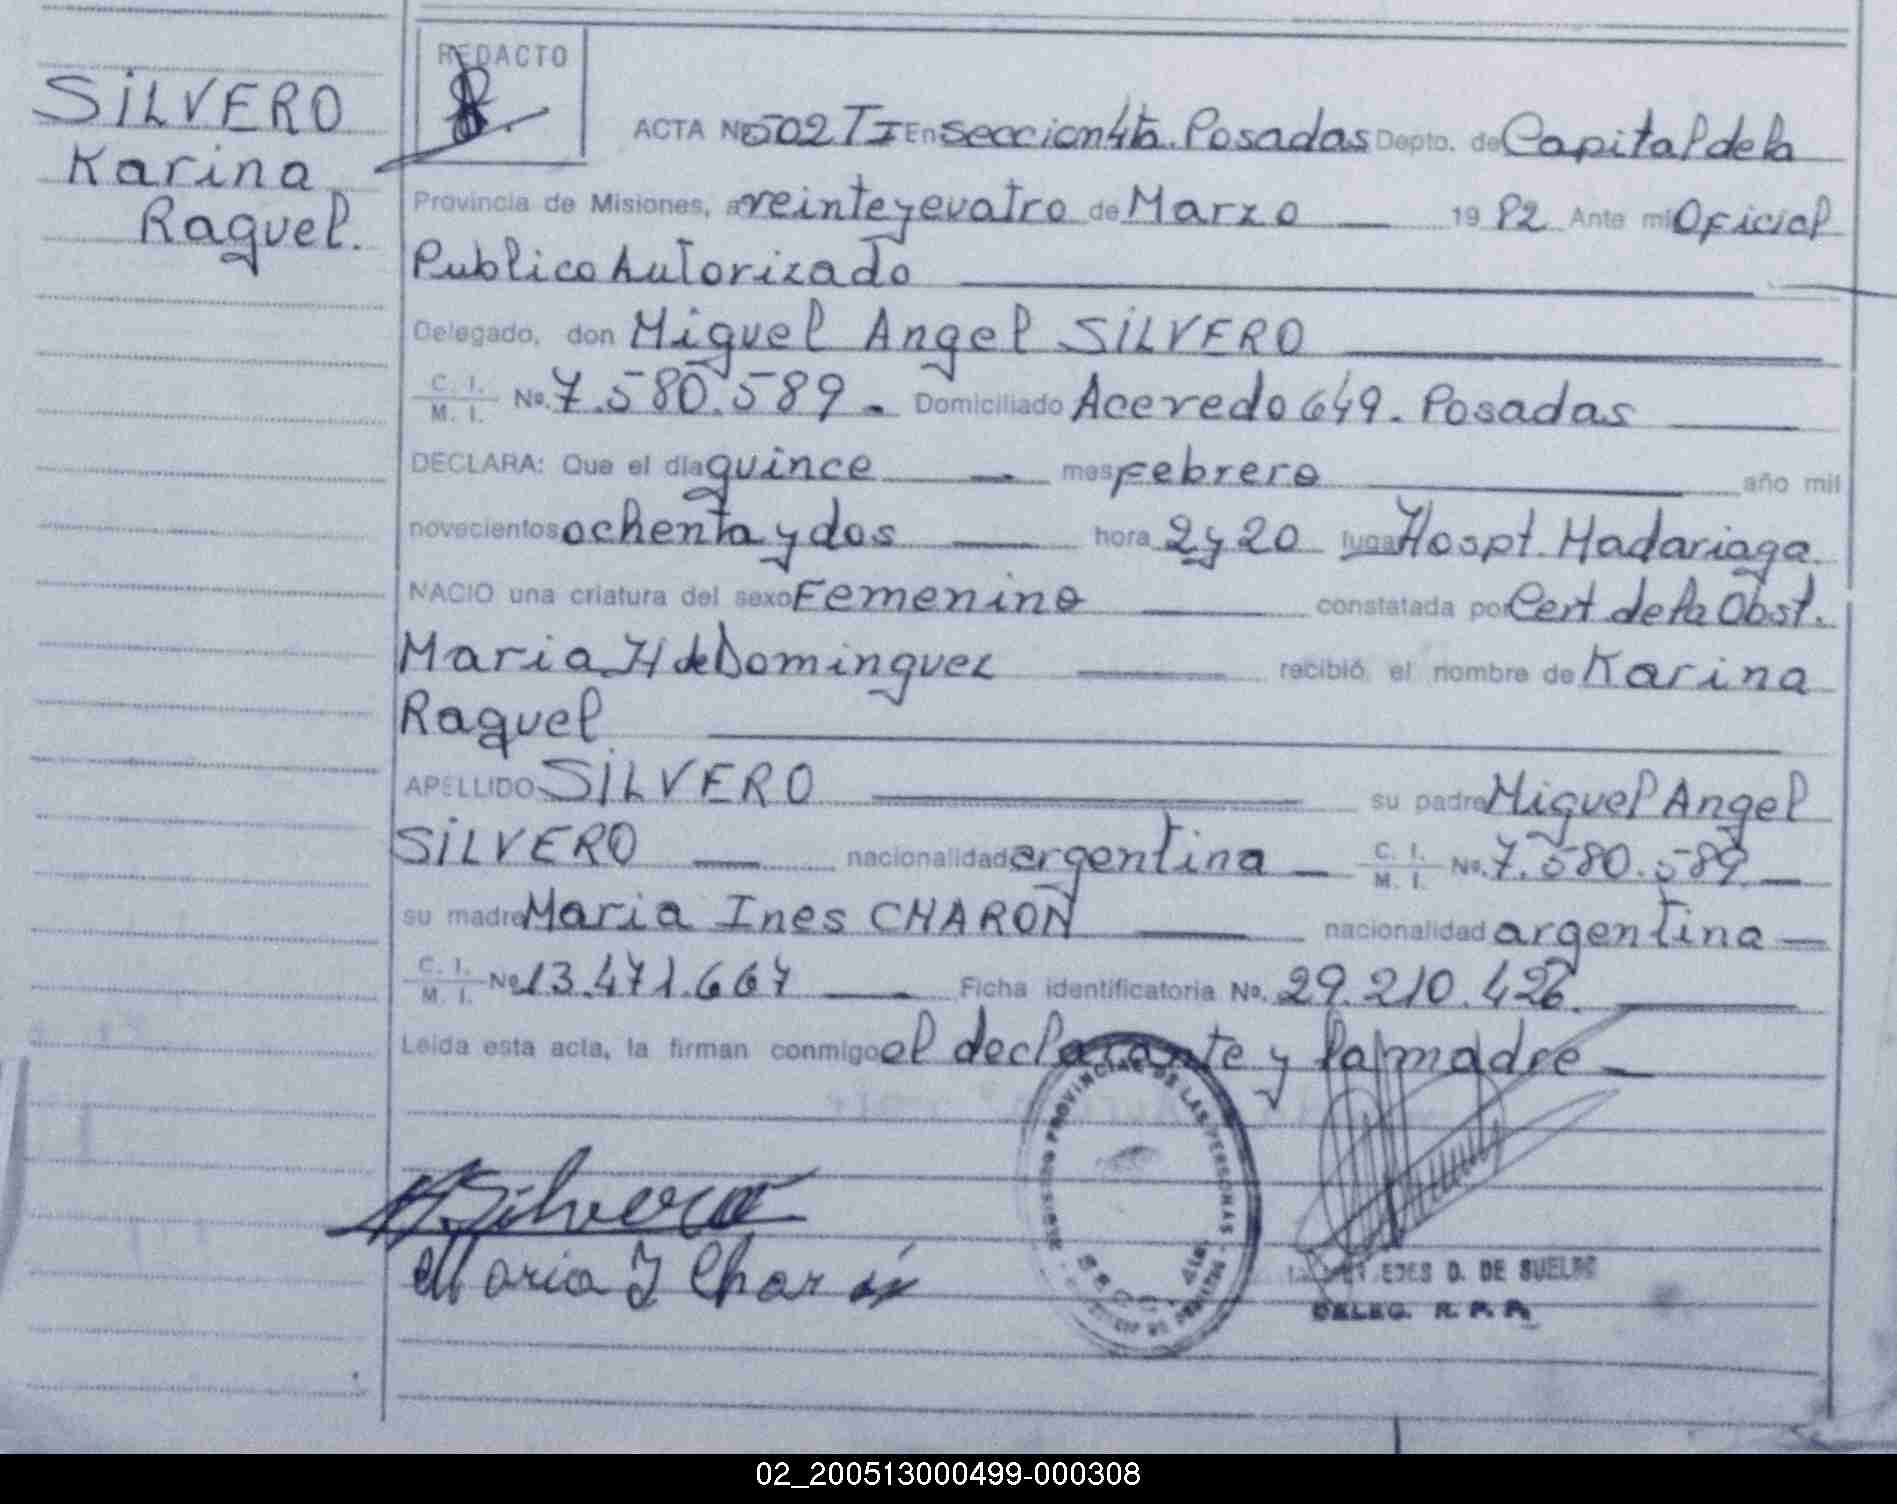 SILVERO
Karina
Raquel.
REDACTO
ACTA Nº 502 TI En seccion 4ta. Posadas Depto. de Capital de la
Provincia de Misiones, a veinte y cuatro de Marzo 1982 Ante mi Oficial
Publico Autorizado
Delegado, don Miguel Angel SILVERO
C. I. / M. I. Nº. 7.580.589. Domiciliado Acevedo 649. Posadas
DECLARA: Que el día quince mes Febrero año mil
novecientos ochenta y dos hora 2 y 20 lugar Hospt. Madariaga.
NACIO una criatura del sexo Femenino constatada por Cert. de la Obst.
Maria H de Dominguez recibió el nombre de Karina
Raquel
APELLIDO SILVERO su padre Miguel Angel
SILVERO nacionalidad argentina C. I. / M. I. Nº. 7.580.589
su madre Maria Ines CHARON nacionalidad argentina
C. I. / M. I. Nº 13.471.667 Ficha identificatoria Nº. 29.210.426.
Leída esta acta, la firman conmigo el declarante y la madre
REGISTRO PROVINCIAL DE LAS PERSONAS
M. Silvero
Maria I Charon
D. DE SUELDO
DELEG. R. P. P.
02_200513000499-000308